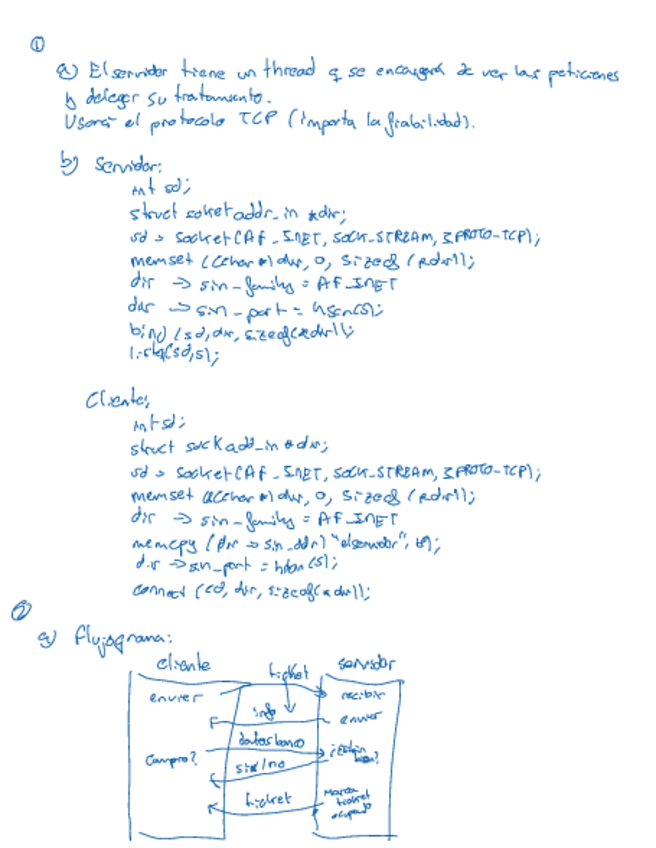 ①
a) El servidor tiene un thread q se encargará de ver las peticiones
y delegar su tratamiento.
Usará el protocolo TCP (importa la fiabilidad).
b) Servidor:
int sd;
struct soketaddr_in *dir;
sd = socket(AF_INET, SOCK_STREAM, IPROTO-TCP);
memset ((char *) dir, 0, sizeof (*dir));
dir -> sin-family = AF_INET
dir -> sin-port =
bind (sd, dir, sizeof(*dir));
(sd,5);
Cliente;
int sd;
struct sockadd_in *dir;
sd = socket(AF_INET, SOCK_STREAM, IPROTO-TCP);
memset ((char *) dir, 0, sizeof (*dir));
dir -> sin-family = AF_INET
memcpy (dir -> sin_addr) "elservidor",
dir -> sin_port =
connect (sd, dir, sizeof(*dir));
②
a) Flujograma:
cliente ticket servidor
enviar recibir
info enviar
datos banco
Compro? ¿Están bien?
si/no
ticket Marca ticket ocupado